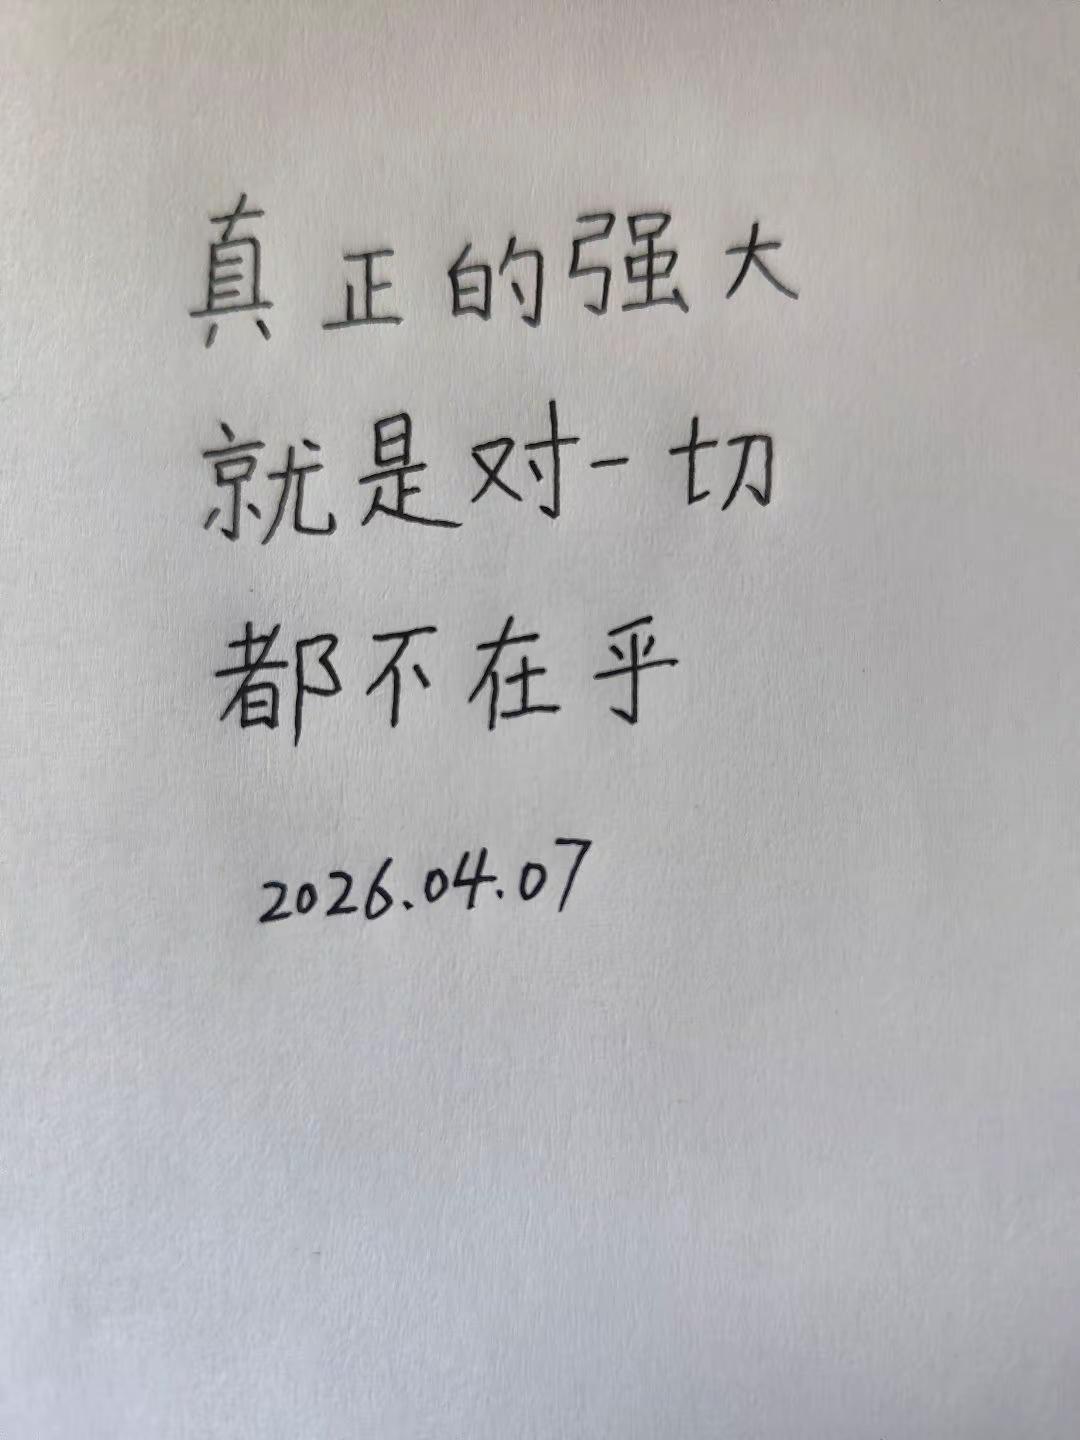 真正的强大
就是对一切
都不在乎
2026.04.07